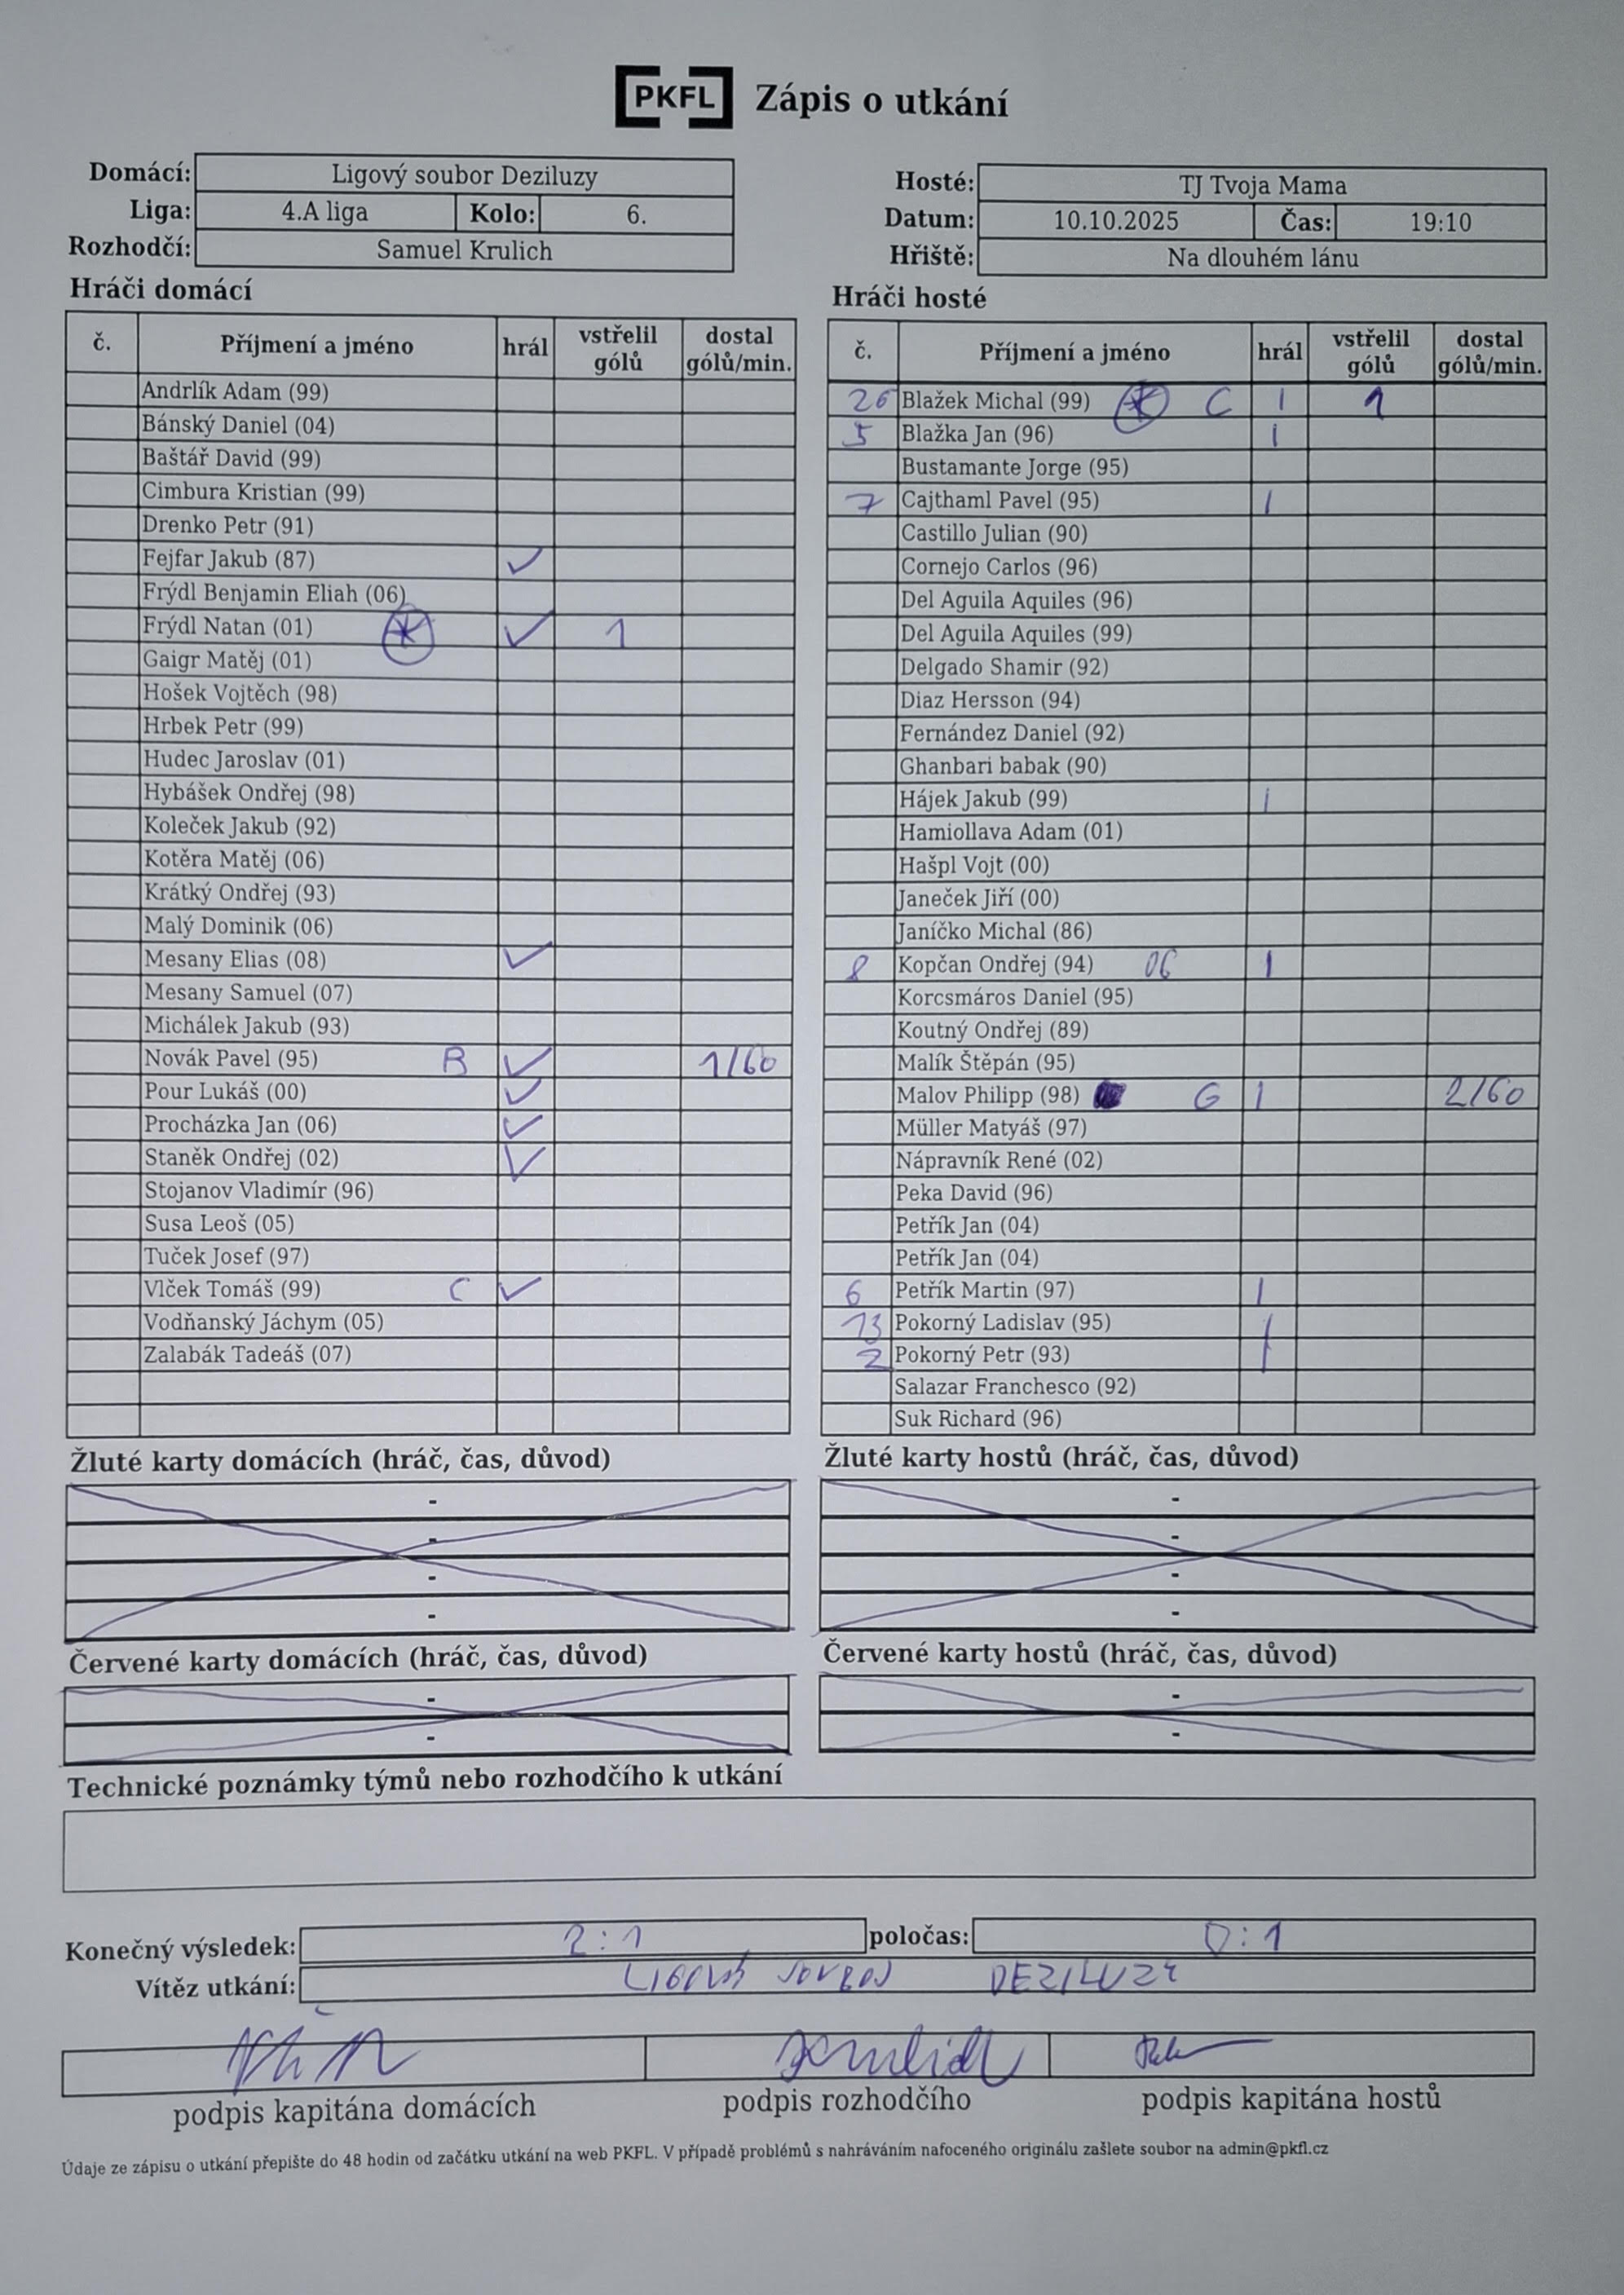 PKFL Zápis o utkání
Domácí: Ligový soubor Deziluzy
Liga: 4.A liga Kolo: 6.
Rozhodčí: Samuel Krulich
Hosté: TJ Tvoja Mama
Datum: 10.10.2025 Čas: 19:10
Hřiště: Na dlouhém lánu
Hráči domácí
č. Příjmení a jméno hrál vstřelil gólů dostal gólů/min.
Andrlík Adam (99)
Bánský Daniel (04)
Baštář David (99)
Cimbura Kristian (99)
Drenko Petr (91)
Fejfar Jakub (87) ✓
Frýdl Benjamin Eliah (06)
Frýdl Natan (01) * ✓ 1
Gaigr Matěj (01)
Hošek Vojtěch (98)
Hrbek Petr (99)
Hudec Jaroslav (01)
Hybášek Ondřej (98)
Koleček Jakub (92)
Kotěra Matěj (06)
Krátký Ondřej (93)
Malý Dominik (06)
Mesany Elias (08) ✓
Mesany Samuel (07)
Michálek Jakub (93)
Novák Pavel (95) B ✓ 1/60
Pour Lukáš (00) ✓
Procházka Jan (06) ✓
Staněk Ondřej (02) ✓
Stojanov Vladimír (96)
Susa Leoš (05)
Tuček Josef (97)
Vlček Tomáš (99) C ✓
Vodňanský Jáchym (05)
Zalabák Tadeáš (07)
Hráči hosté
č. Příjmení a jméno hrál vstřelil gólů dostal gólů/min.
26 Blažek Michal (99) * C 1 1
5 Blažka Jan (96) 1
Bustamante Jorge (95)
7 Cajthaml Pavel (95) 1
Castillo Julian (90)
Cornejo Carlos (96)
Del Aguila Aquiles (96)
Del Aguila Aquiles (99)
Delgado Shamir (92)
Diaz Hersson (94)
Fernández Daniel (92)
Ghanbari babak (90)
Hájek Jakub (99) 1
Hamiollava Adam (01)
Hašpl Vojt (00)
Janeček Jiří (00)
Janíčko Michal (86)
8 Kopčan Ondřej (94) 1
Korcsmáros Daniel (95)
Koutný Ondřej (89)
Malík Štěpán (95)
Malov Philipp (98) G 1 2/60
Müller Matyáš (97)
Nápravník René (02)
Peka David (96)
Petřík Jan (04)
Petřík Jan (04)
6 Petřík Martin (97) 1
13 Pokorný Ladislav (95) 1
2 Pokorný Petr (93) 1
Salazar Franchesco (92)
Suk Richard (96)
Žluté karty domácích (hráč, čas, důvod)
-
-
-
-
Žluté karty hostů (hráč, čas, důvod)
-
-
-
-
Červené karty domácích (hráč, čas, důvod)
-
-
Červené karty hostů (hráč, čas, důvod)
-
-
Technické poznámky týmů nebo rozhodčího k utkání
Konečný výsledek: 2:1 poločas: 0:1
Vítěz utkání: LIGOVÝ SOUBOR DEZILUZY
podpis kapitána domácích podpis rozhodčího podpis kapitána hostů
Údaje ze zápisu o utkání přepište do 48 hodin od začátku utkání na web PKFL. V případě problémů s nahráváním nafoceného originálu zašlete soubor na admin@pkfl.cz